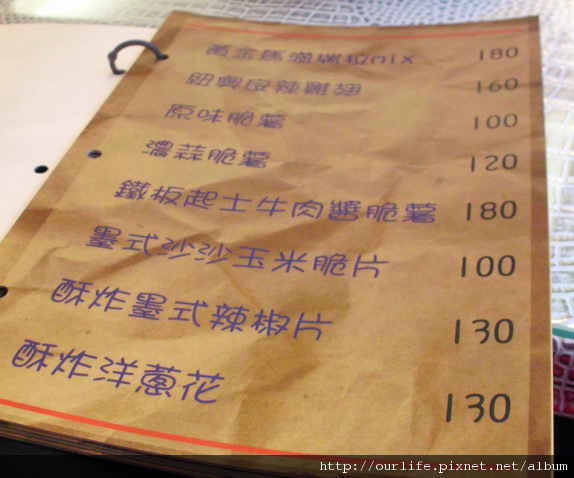 黃金馬滋瑞拉mix 180
紐奧良辣雞翅 160
原味脆薯 100
濃蒜脆薯 120
鐵板起士牛肉醬脆薯 180
墨式沙沙玉米脆片 100
酥炸墨式辣椒片 130
酥炸洋蔥花 130
http://ourlife.pixnet.net/album